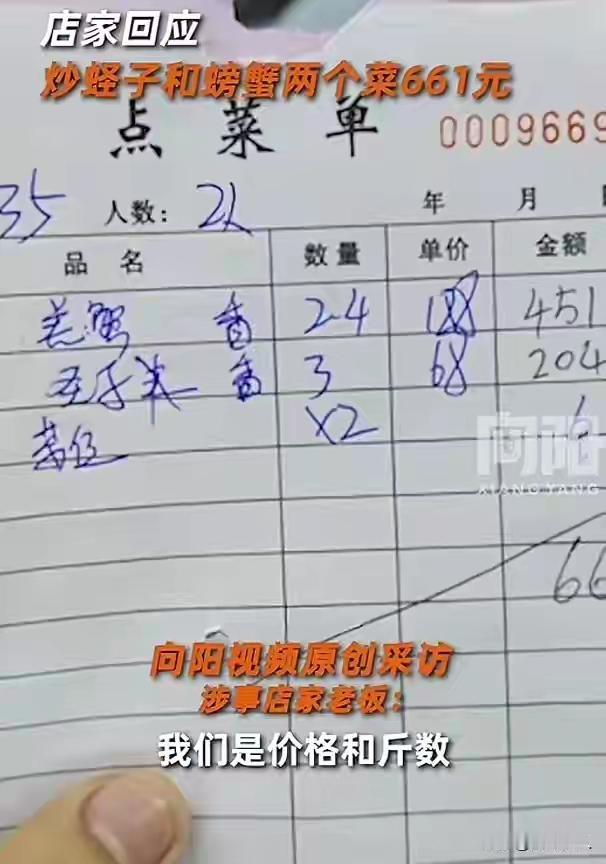 店家回应
炒蛏子和螃蟹两个菜661元
点菜单 0009669
35 人数: 2人 年 月
品名 数量 单价 金额
羔蟹 香 2.4 188 451
圣子米 香 3 68 204
茶位 x2 6
向阳
XIANG YANG
66
向阳视频原创采访
涉事店家老板:
我们是价格和斤数